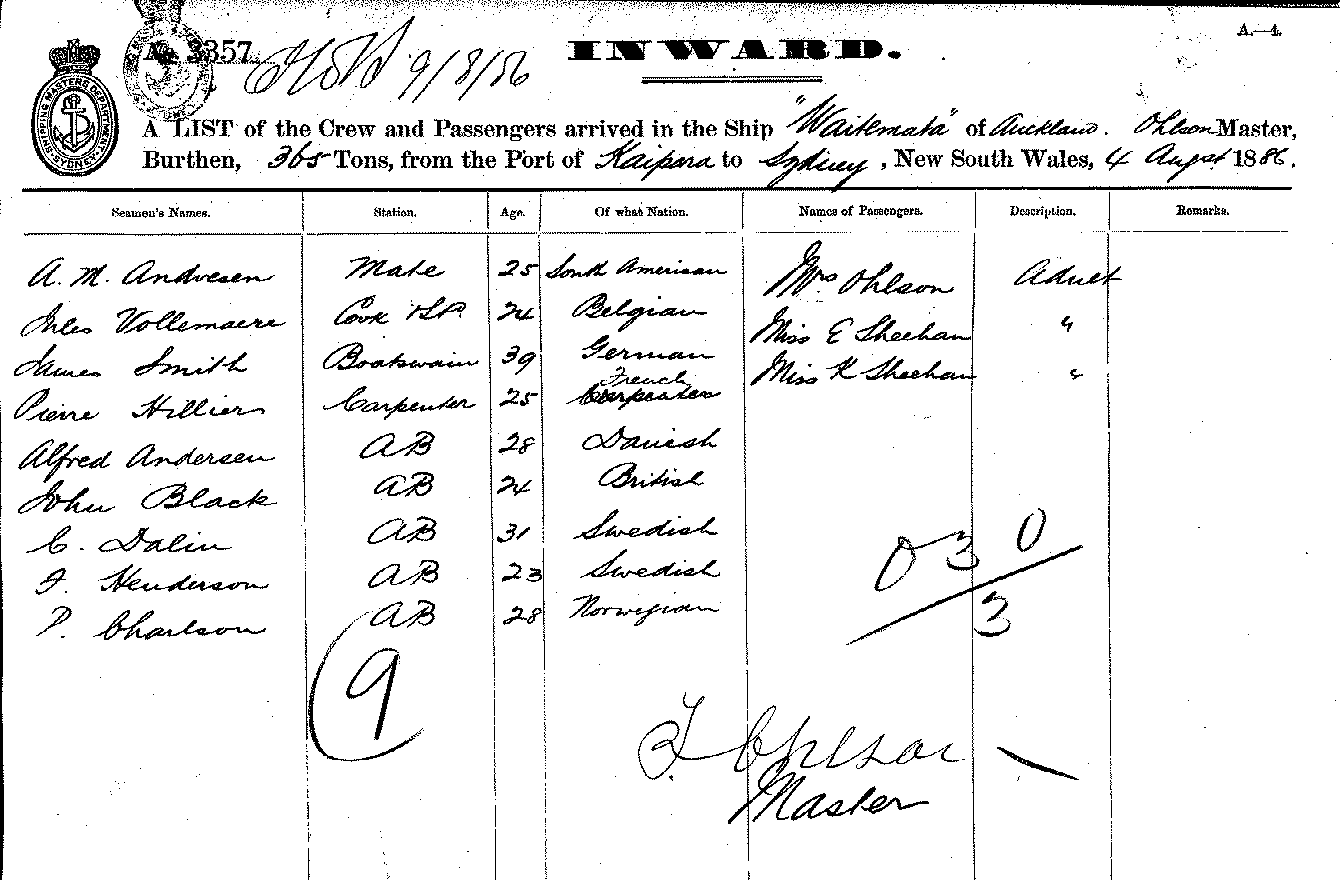 A.—4.
No. 3357
9/8/86
INWARD.
SHIPPING MASTERS DEPARTMENT SYDNEY
A LIST of the Crew and Passengers arrived in the Ship "Waitemata" of Auckland. Ohlson Master,
Burthen, 365 Tons, from the Port of Kaipara to Sydney, New South Wales, 4 Augst 1886.
Seamen's Names. Station. Age. Of what Nation. Names of Passengers. Description. Remarks.
A. M. Andresen Mate 25 South American Mrs Ohlson Adult
Jules Vollemaere Cook & St 24 Belgian Miss E Sheehan "
James Smith Boatswain 39 German Miss K Sheehan "
French
Pierre Hillier Carpenter 25 Carpenter
Alfred Andersen AB 28 Danish
John Black AB 24 British
C. Dalin AB 31 Swedish
F. Henderson AB 23 Swedish
P. Charlson AB 28 Norwegian
0 3 0
3
9
Ohlson
Master